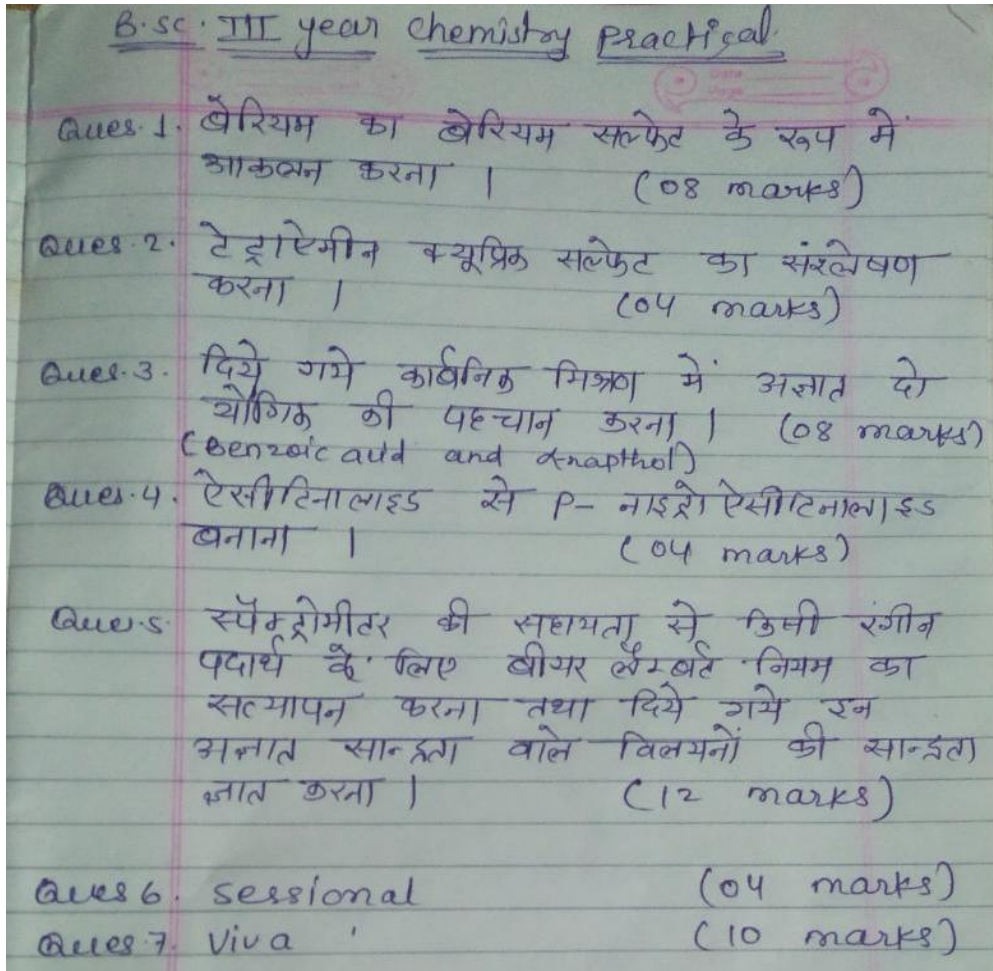 B.sc. III year Chemistry practical.
Date
Page
Ques.1. बेरियम का बेरियम सल्फेट के रूप में
आकलन करना । (08 marks)
Ques.2. टेट्राऐमीन क्यूप्रिक सल्फेट का संश्लेषण
करना । (04 marks)
Ques.3. दिये गये कार्बनिक मिश्रण में अज्ञात दो
यौगिक की पहचान करना । (08 marks)
(Benzoic acid and α-napthol)
Ques.4. ऐसीटिनालाइड से P- नाइट्रो ऐसीटिनालाइड
बनाना । (04 marks)
Ques.5. स्पैक्ट्रोमीटर की सहायता से किसी रंगीन
पदार्थ के लिए बीयर लैम्बर्ट नियम का
सत्यापन करना तथा दिये गये इन
अज्ञात सान्द्रता वाले विलयनों की सान्द्रता
ज्ञात करना । (12 marks)
Ques 6. sessional (04 marks)
Ques.7. Viva (10 marks)